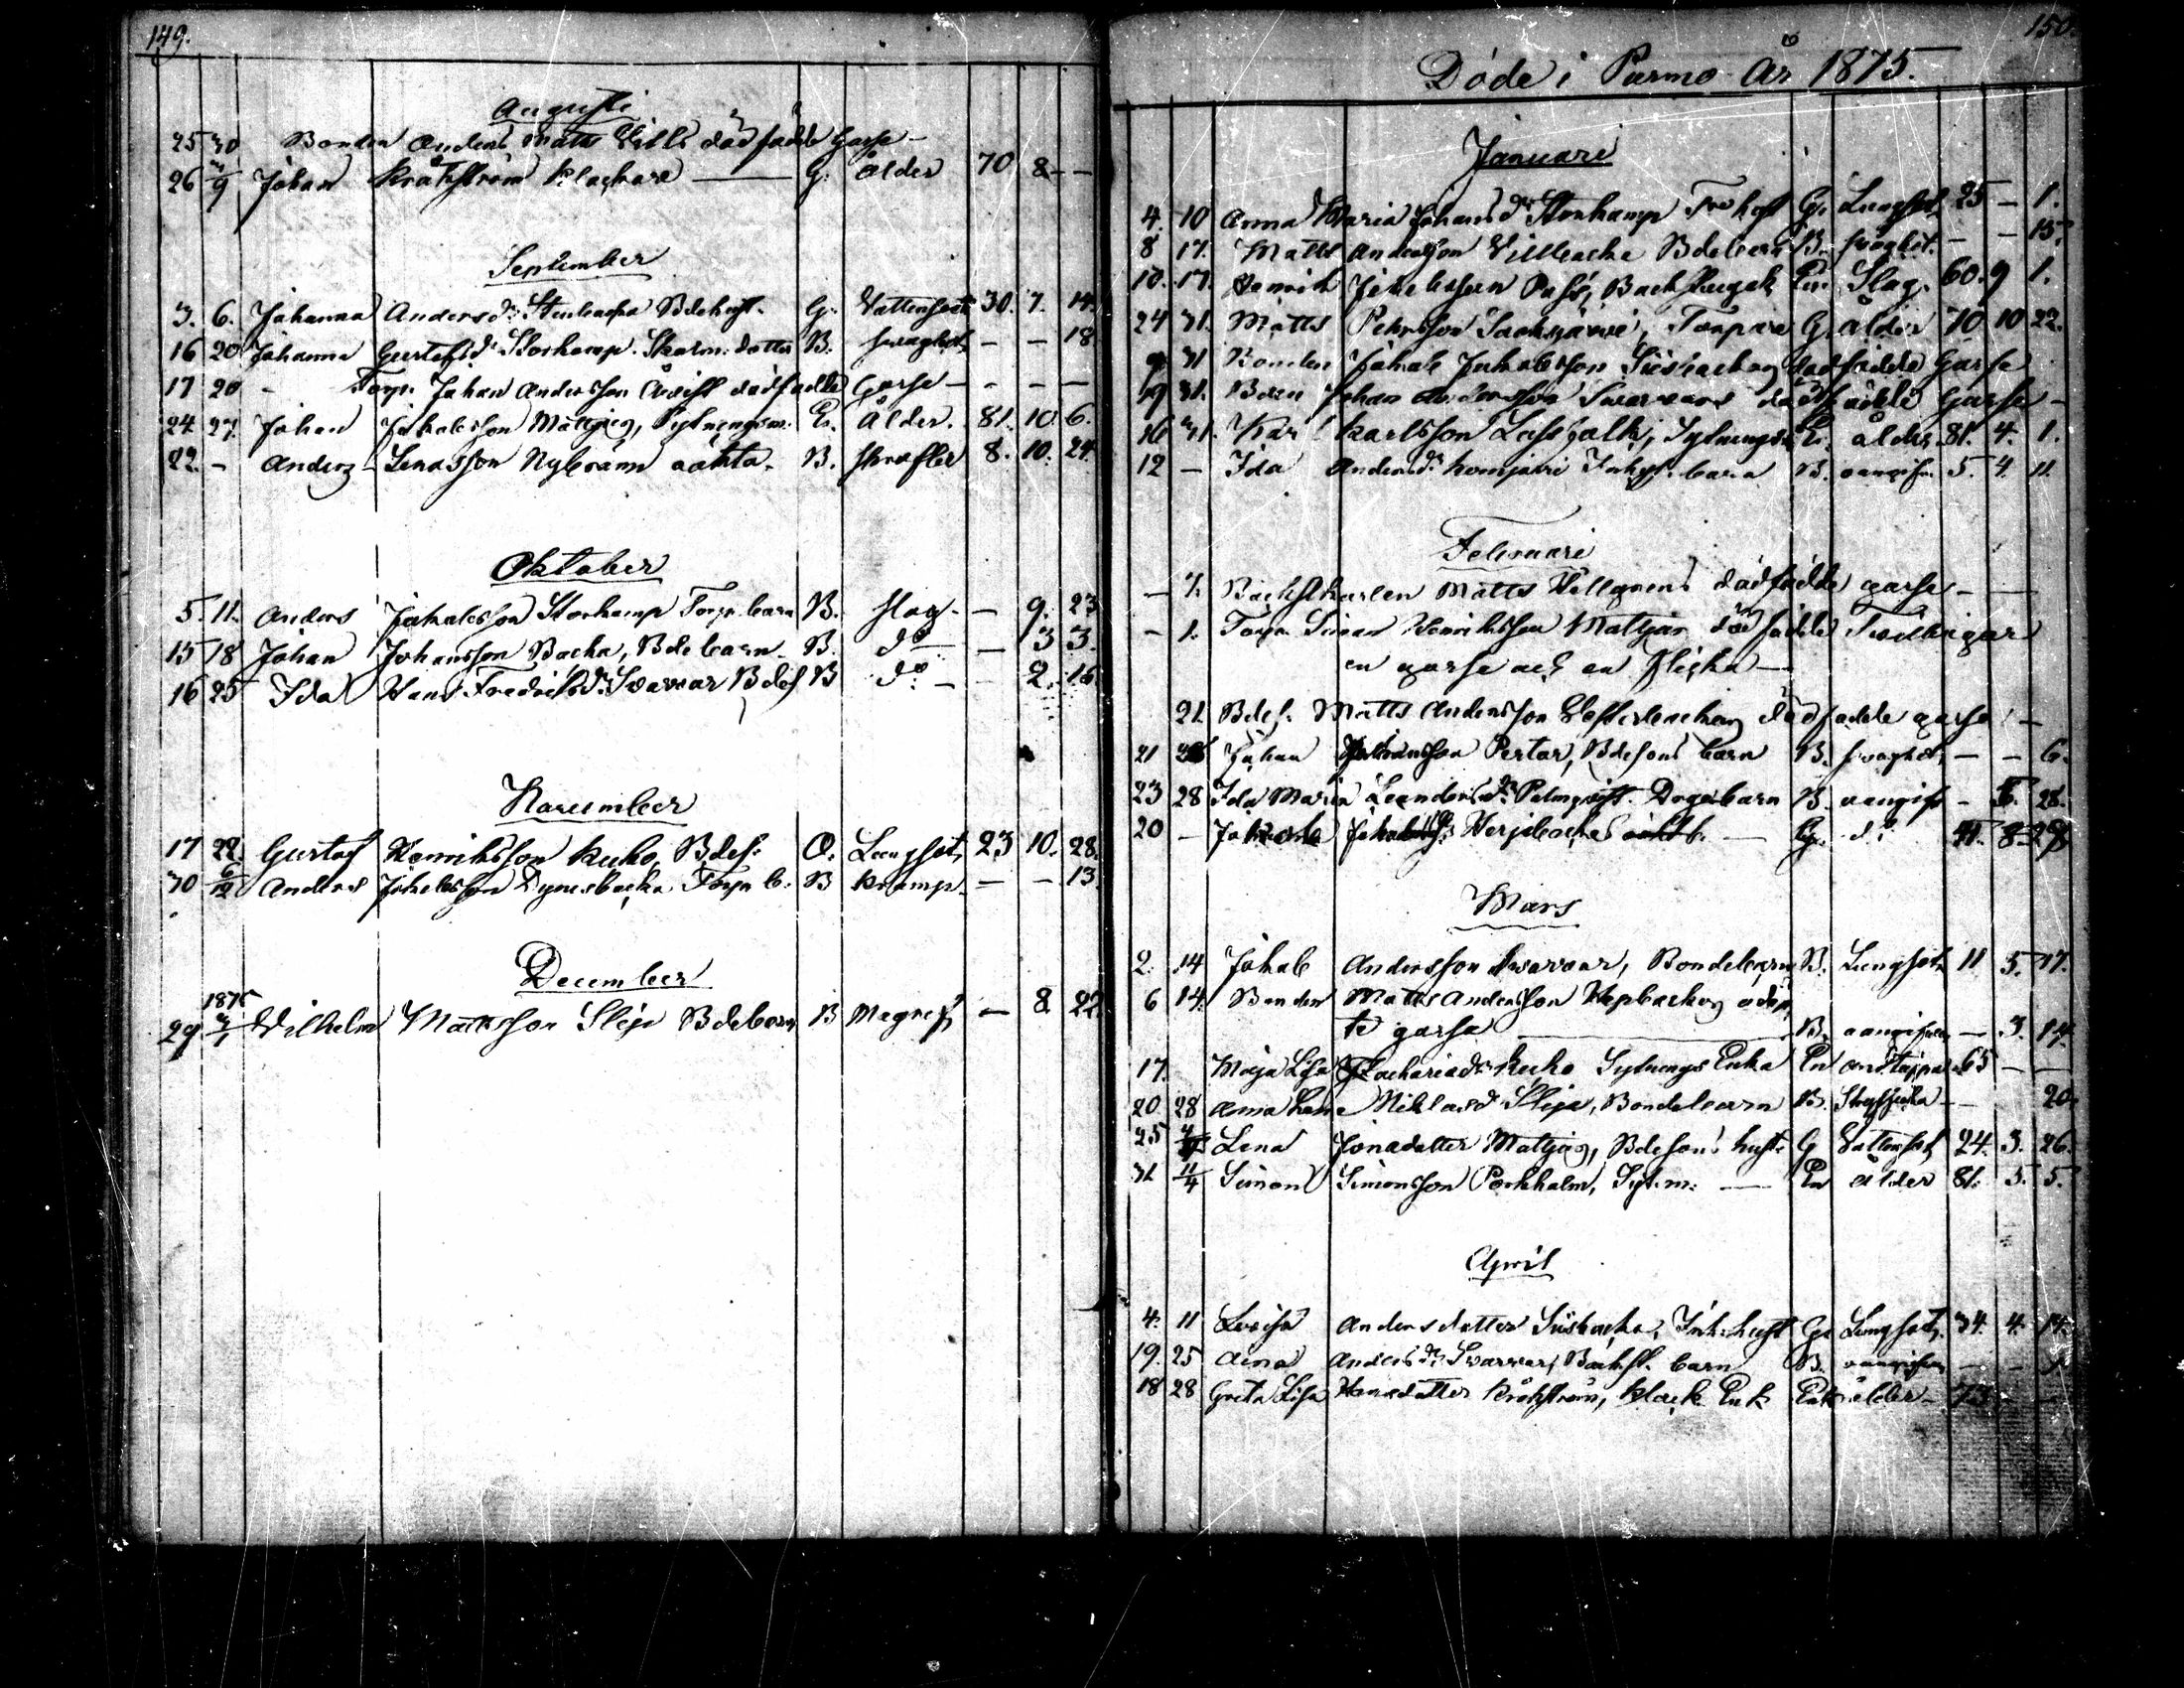 149.
Augusti
25 30 Bonden Anders Matts Lills dödfödde Gosse -
26 9 Johan Kråkström Klockare G. Ålder 70 8 -
September
3. 6. Johanna Anders dr Stenbacka Bdehust. G. Vattensot 30. 7. 14.
16 20 Johanna Gustafs dr Storkamp dotter B. svaghet - - 18.
17 20 - Torp. Johan Andersson dödfödde Gosse - - - -
24. 27. Johan Jakobsson Mattjas, Sytningsm. E. Ålder. 81. 10. 6.
22. - Anders Nybränn oäkta. B. skrofler 8. 10. 24.
Oktober
5. 11. Anders Jakobsson Storkamp Torp. barn B. slag - - 9. 23
15 18 Johan Johansson Backa, Bdebarn B. do - - 3 3.
16 25 Ida Hans Fredriks dr Svarvar Bdes B do - - 2. 16.
November
17 22. Gustaf Henriksson Kuko, Bdes. O. Lungsot, 23 10. 28.
30 6/12 Anders Jakobsson Dynesbacka Torp. b. B Kramp - - 13.
December
1875
29 Vilhelm Mattsson Slip Bdebarn B Magref - 8 22.
150.
Döde i Purmo År 1875.
Januari
4. 10 Anna Maria Johans dr Storkamp hust G. Lungsot 25 - 1.
8 17. Matts Andersson Lillbacka Bdebarn B. svaghet. - - 15.
10. 17. Henrik Slag. 60. 9 1.
24 31. Matts Pehrsson, Torpare G. ålder 70 10 22.
31 Bonden Jakob Jakobsson Sisbackas dödfödde Gosse
19 31. Bden Johan Andersson Svarvars dödfödde Gosse -
16 31. Karl Karlsson Lassfolk, Sytningsm. E. ålder 81. 4. 1.
12 - Ida Anders dr Inhys. barn B. 5. 4. 11.
Februari
- 7. Backstkarlen Matts Hellgrens dödfödde gosse - -
- 7. Torp. Simon Henriksson Mattjas dödfödde Tvillingar
en gosse och en flicka -
21 Bdes. Matts Andersson Vesterbackas dödfödde gosse -
21 28 Johan Johansson Pertar, Bdesons barn B. svaghet, - - 6.
23 28 Ida Maria Leanders dr Palmqvist. B. - 28.
20 - Herjebacka
Mars
2. 14 Jakob Andersson Svarvar, Bondebarn B. Lungsot, 11 5. 17.
6 14. Bonden Matts Andersson odöp
te gosse B. - 3. 14.
17. Maja Lisa Zachariasdr Kuko Sytnings Enka En andtäppa 65 - -
20 28 Anna Lena Niklas dr Slip, Bondebarn B. Strypsjuka - - 20.
25 Lena Jonasdotter Mattjas, Bdesons hust. G Vattensot, 24. 3. 26.
31 11/4 Simon Simonsson Porkholm, Syt.m. En ålder 81. 5. 5.
April
4. 11 Lovisa Andersdotter Sisbacka, Inh. hust G. Lungsot, 34. 4. 14.
19. 25 Aina Anders dr Svarvar, Backst. barn B. - -
18 28 Greta Lisa Hansdotter Kråkström, Klock. Enk Enk ålder - 73 - -